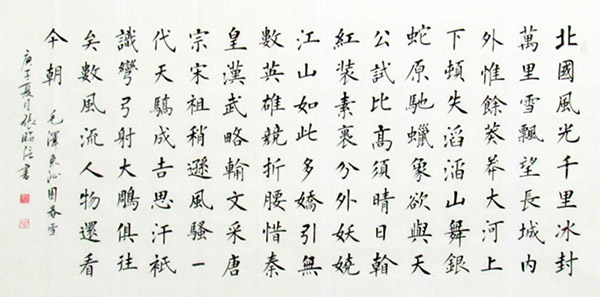 北國風光千里冰封
萬里雪飄望長城內
外惟餘莽莽大河上
下頓失滔滔山舞銀
蛇原馳蠟象欲與天
公試比高須晴日
紅装素裹分外妖嬈
江山如此多嬌引無
數英雄競折腰惜秦
皇漢武略輸文采唐
宗宋祖稍遜風騷一
代天驕成吉思汗衹
識彎弓射大鵰俱往
矣數風流人物還看
今朝
毛澤東沁園春雪
庚子夏月張臨書